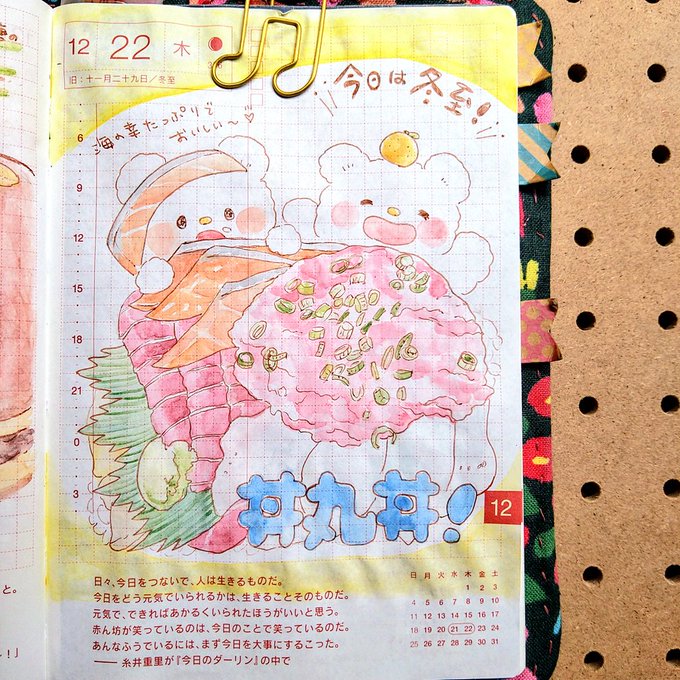 12 22 木
旧:十一月二十九日/冬至
今日は冬至!!
海の幸たっぷりで
おいしい〜♡
6
9
12
15
18
21
0
3
丼丸丼!
12
日々、今日をつないで、人は生きるものだ。
今日をどう元気でいられるかは、生きることそのものだ。
元気で、できればあかるくいられたほうがいいと思う。
赤ん坊が笑っているのは、今日のことで笑っているのだ。
あんなふうでいるには、まず今日を大事にするこった。
—— 糸井重里が『今日のダーリン』の中で
日 月 火 水 木 金 土
1 2 3
4 5 6 7 8 9 10
11 12 13 14 15 16 17
18 19 20 21 22 23 24
25 26 27 28 29 30 31
と。
!」